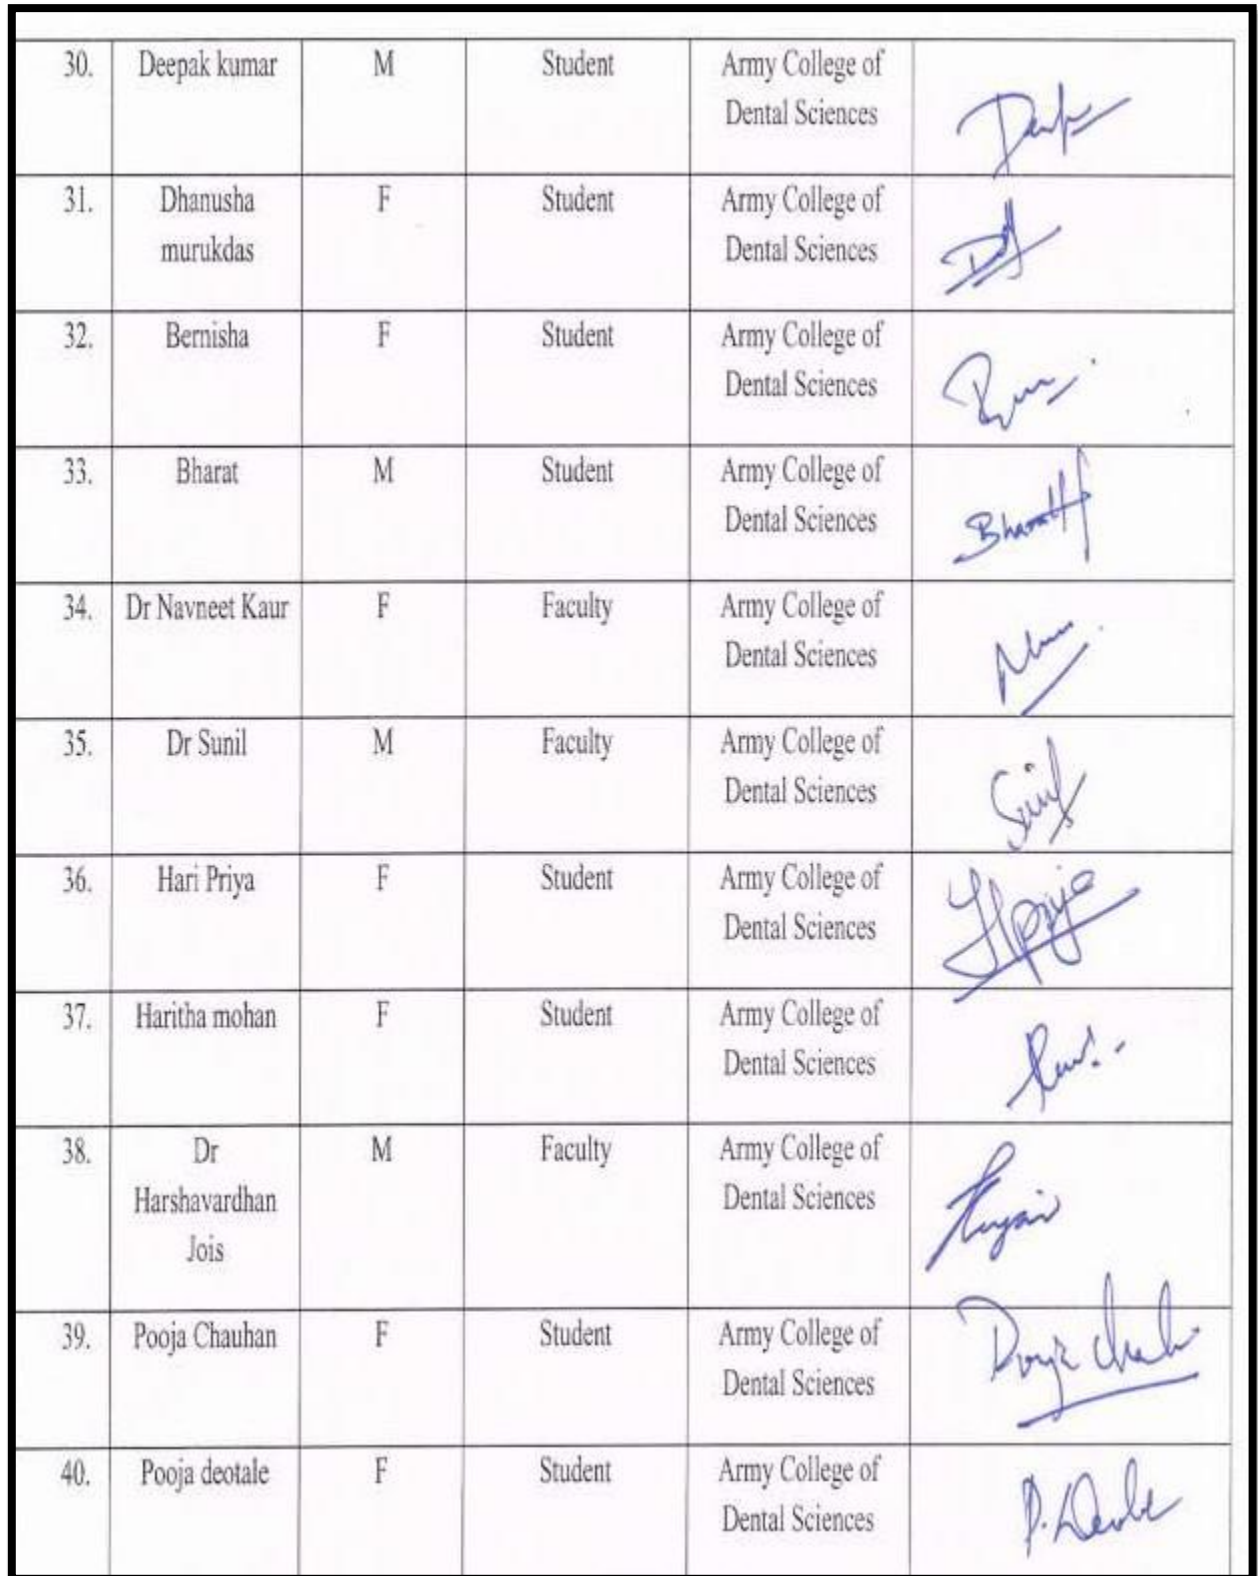 30. Deepak kumar M Student Army College of
Dental Sciences
31. Dhanusha F Student Army College of
murukdas Dental Sciences
32. Bernisha F Student Army College of
Dental Sciences
33. Bharat M Student Army College of
Dental Sciences
Bharat
34. Dr Navneet Kaur F Faculty Army College of
Dental Sciences
35. Dr Sunil M Faculty Army College of
Dental Sciences
Sunil
36. Hari Priya F Student Army College of
Dental Sciences
37. Haritha mohan F Student Army College of
Dental Sciences
38. Dr M Faculty Army College of
Harshavardhan Dental Sciences
Jois
39. Pooja Chauhan F Student Army College of
Dental Sciences
40. Pooja deotale F Student Army College of
Dental Sciences